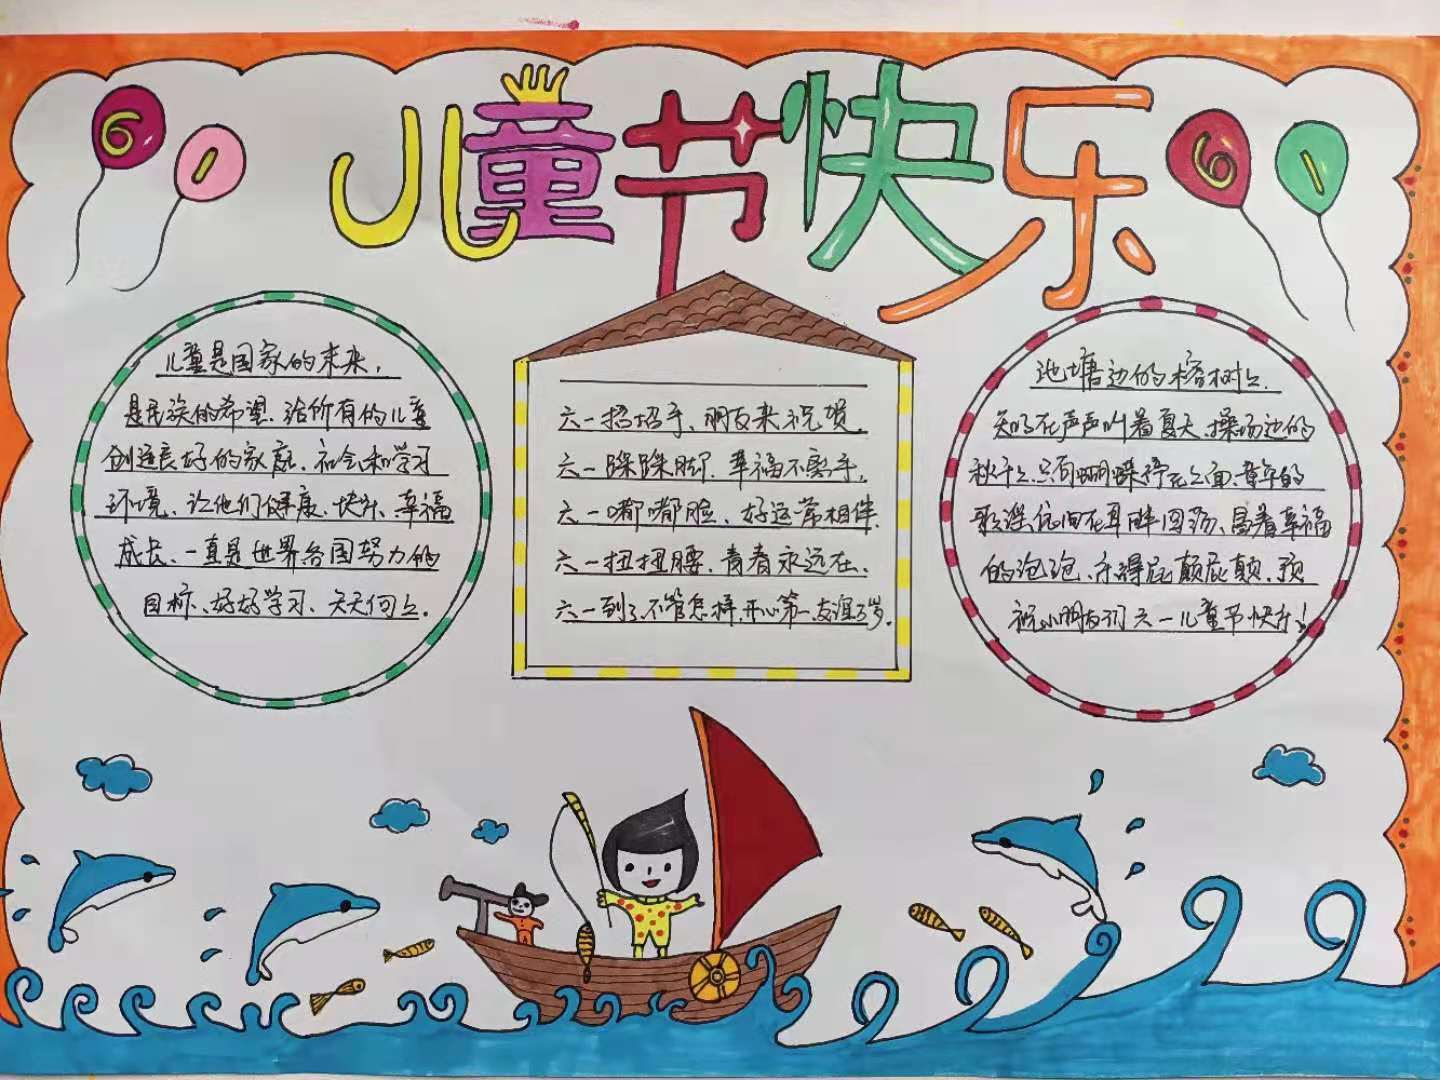 儿童节快乐
6 1
6 1
儿童是国家的未来，
是民族的希望、给所有的儿童
创造良好的家庭、社会和学习
环境、让他们健康、快乐、幸福
成长、一直是世界各国努力的
目标、好好学习、天天向上.
六一招招手、朋友来祝贺.
六一跺跺脚、幸福不牵手,
六一嘟嘟脸、好运常相伴.
六一扭扭腰、青春永远在、
六一到了、不管怎样、开心第一、友谊万岁.
池塘边的榕树上.
知了在声声叫着夏天、操场边的
秋千上、只有蝴蝶停在上面、童年的
歌谣、依旧在耳畔回荡、冒着幸福
的泡泡、乐得屁颠屁颠、预
祝小朋友们六一儿童节快乐！